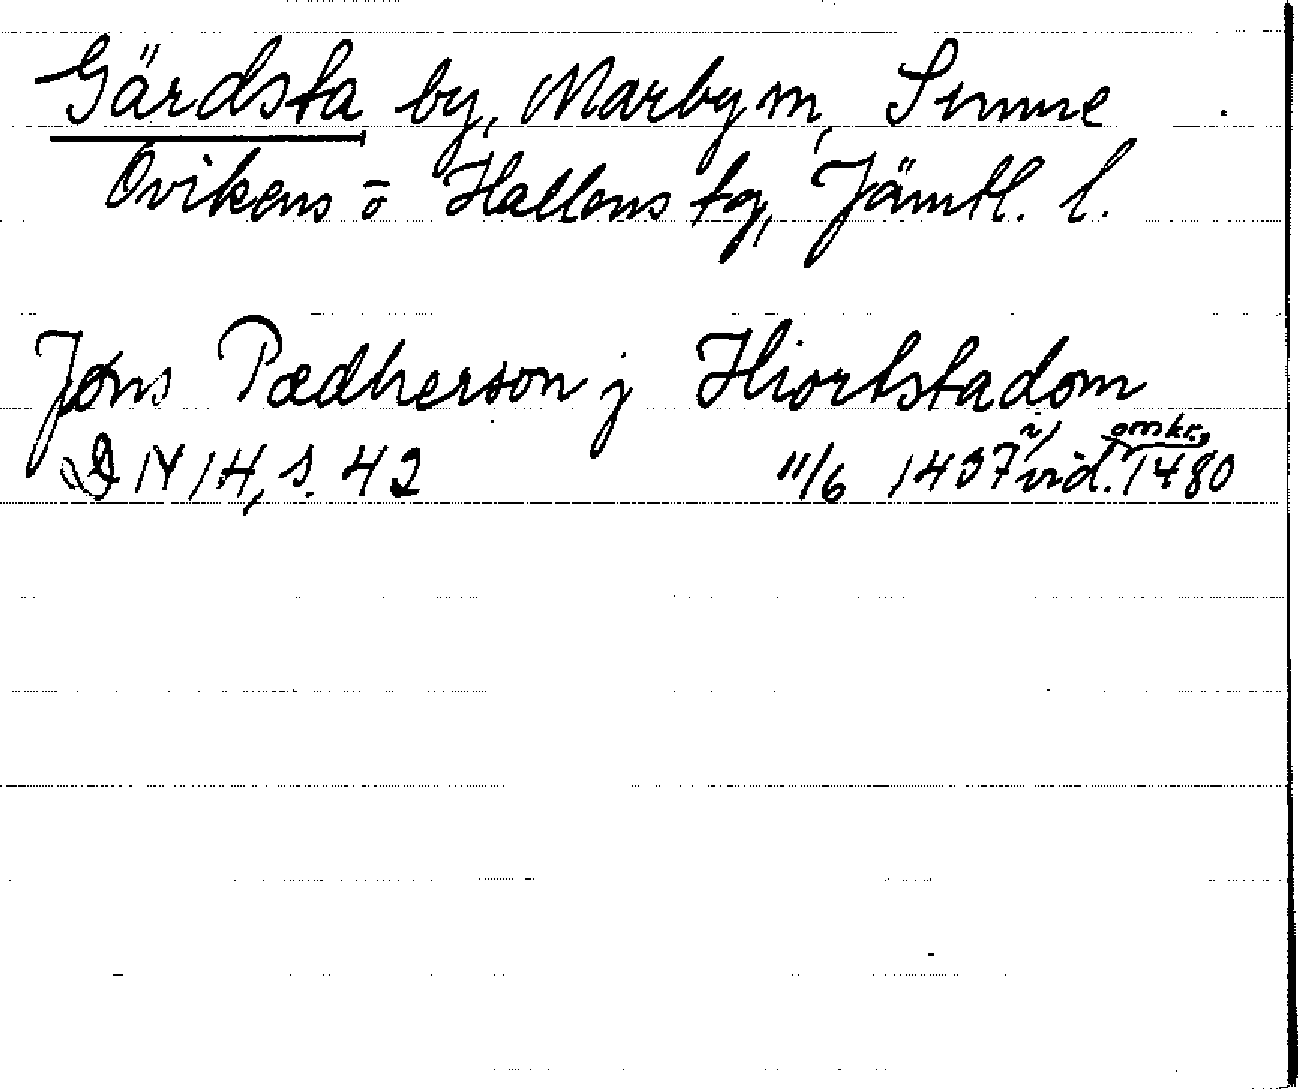 Gärdsta by, Marby sn, Sunne
Ovikens o Hallens tg, Jämtl. l.
Jøns Pædherson j Hiortstadom
DN 14, s. 42 11/6 1437 i vid. omkr. 1480